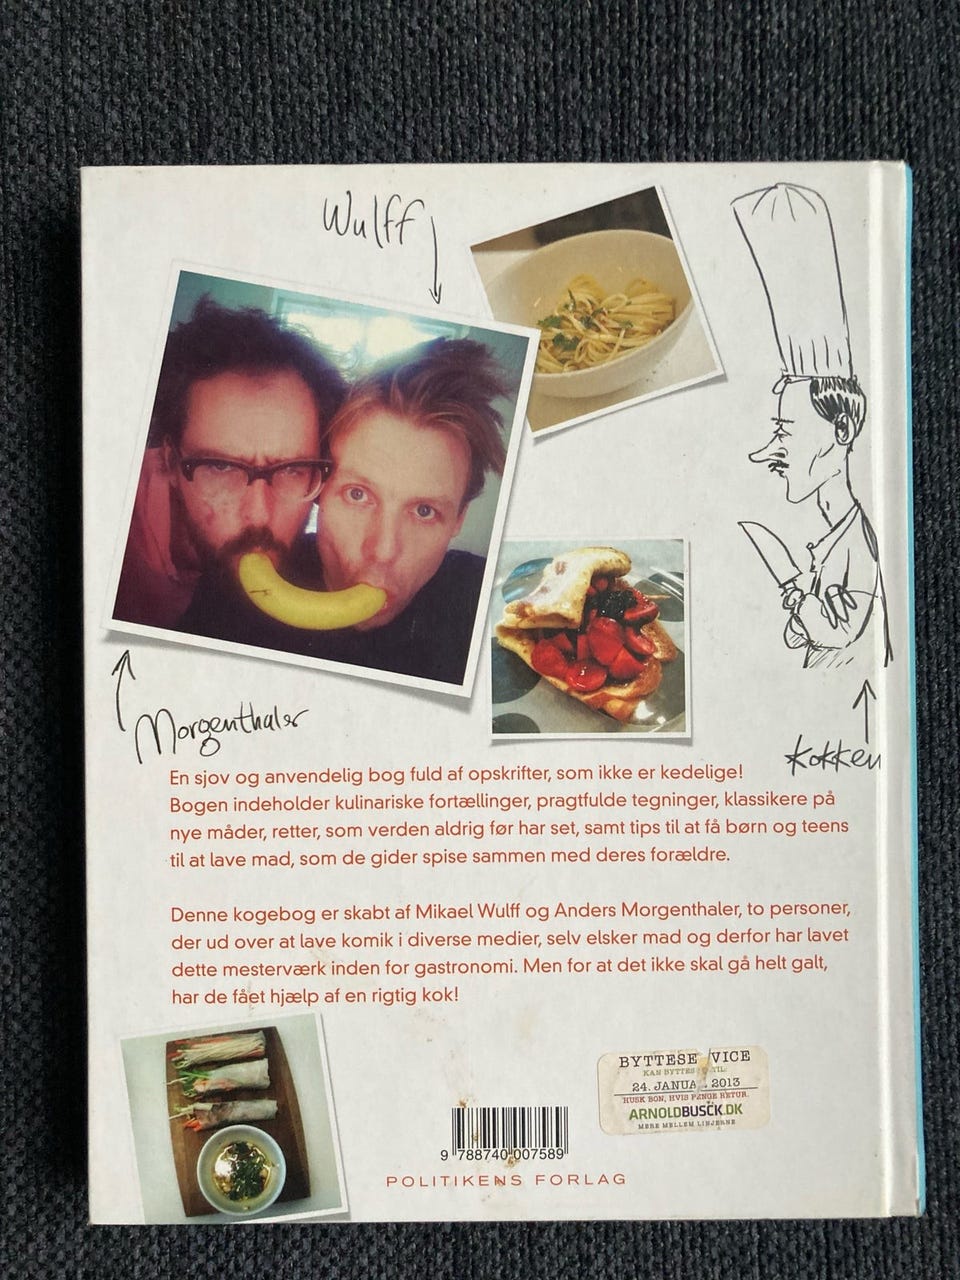 Wulff
Morgenthaler
Kokken
En sjov og anvendelig bog fuld af opskrifter, som ikke er kedelige!
Bogen indeholder kulinariske fortællinger, pragtfulde tegninger, klassikere på
nye måder, retter, som verden aldrig før har set, samt tips til at få børn og teens
til at lave mad, som de gider spise sammen med deres forældre.
Denne kogebog er skabt af Mikael Wulff og Anders Morgenthaler, to personer,
der ud over at lave komik i diverse medier, selv elsker mad og derfor har lavet
dette mesterværk inden for gastronomi. Men for at det ikke skal gå helt galt,
har de fået hjælp af en rigtig kok!
BYTTESE VICE
KAN BYTTES TIL:
24. JANUA 2013
HUSK BON, HVIS PENGE RETUR.
ARNOLDBUSCK.DK
MERE MELLEM LINJERNE
9 788740 007589
POLITIKENS FORLAG